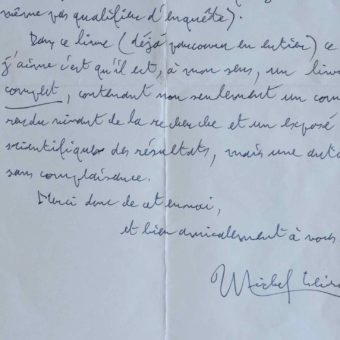 même pas qualifier d'enquête).
Dans ce livre (déjà parcouru en entier) ce
j'aime c'est qu'il est, à mon sens, un livre
complet, contenant non seulement un com
rendu vivant de la recherche et un exposé
scientifique des résultats, mais une auto
sans complaisance.
Merci donc de cet envoi,
et bien amicalement à vous
Michel Leiris